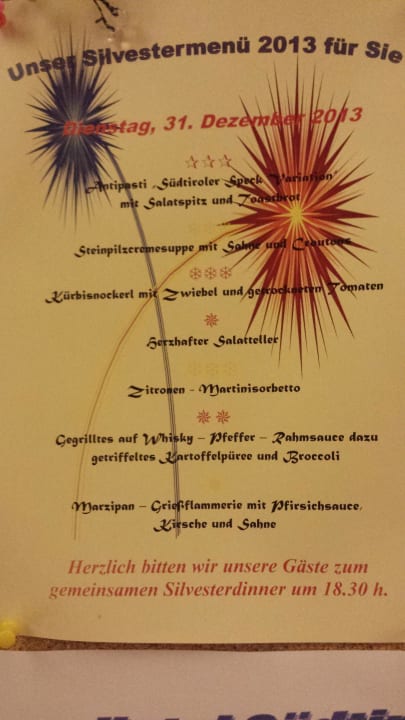 Unser Silvestermenü 2013 für Sie
Dienstag, 31. Dezember 2013
Antipasti „Südtiroler Speck Variation“
mit Salatspitz und Toastbrot
Steinpilzcremesuppe mit Sahne und Croutons
Kürbisnockerl mit Zwiebel und getrockneten Tomaten
Herzhafter Salatteller
Zitronen - Martinisorbetto
Gegrilltes auf Whisky – Pfeffer – Rahmsauce dazu
getriffeltes Kartoffelpüree und Broccoli
Marzipan – Grießflammerie mit Pfirsichsauce,
Kirsche und Sahne
Herzlich bitten wir unsere Gäste zum
gemeinsamen Silvesterdinner um 18.30 h.